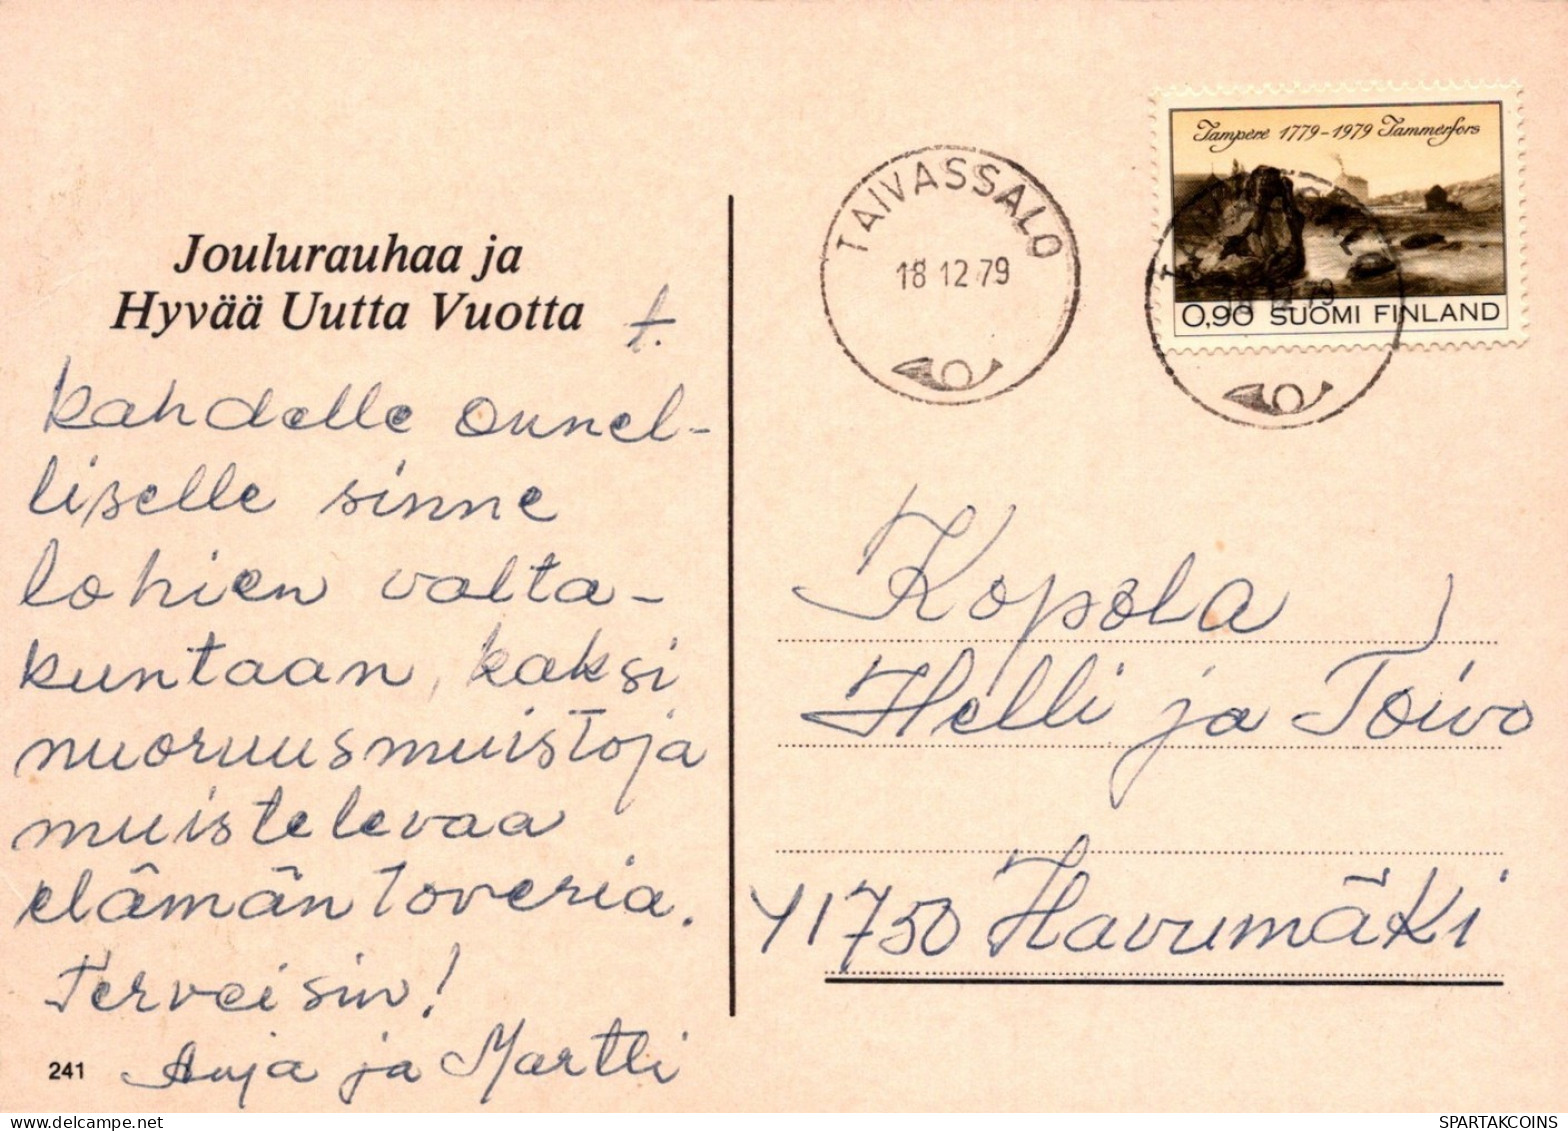 Joulurauhaa ja
Hyvää Uutta Vuotta
t.
kahdelle onnel-
liselle sinne
lohien valta-
kuntaan, kaksi
nuoruusmuistoja
muistelevaa
elämäntoveria.
Terveisin!
Anja ja Martti
241
TAIVASSALO
18 12 79
Tampere 1779-1979 Tammerfors
0,90 SUOMI FINLAND
18 12 79
Kopola
Helli ja Toivo
41750 Havumäki
SPARTAKCOINS